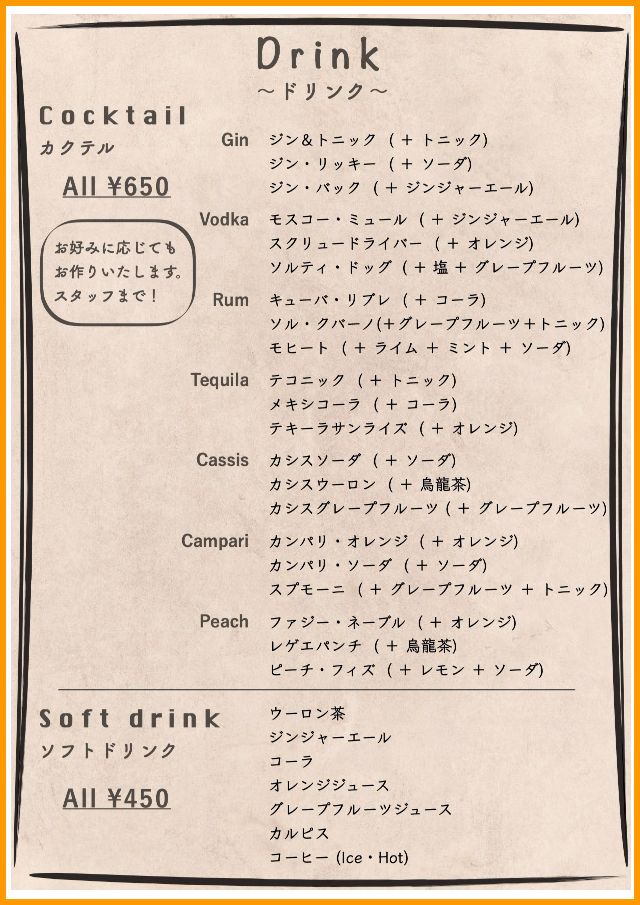 Drink
～ドリンク～
Cocktail
カクテル
All ¥650
お好みに応じても
お作りいたします。
スタッフまで！
Gin
ジン＆トニック （ ＋ トニック)
ジン・リッキー （ ＋ ソーダ)
ジン・バック （ ＋ ジンジャーエール)
Vodka
モスコー・ミュール （ ＋ ジンジャーエール)
スクリュードライバー （ ＋ オレンジ)
ソルティ・ドッグ （ ＋ 塩 ＋ グレープフルーツ)
Rum
キューバ・リブレ （ ＋ コーラ)
ソル・クバーノ(＋グレープフルーツ＋トニック)
モヒート （ ＋ ライム ＋ ミント ＋ ソーダ)
Tequila
テコニック （ ＋ トニック)
メキシコーラ （ ＋ コーラ)
テキーラサンライズ （ ＋ オレンジ)
Cassis
カシスソーダ （ ＋ ソーダ)
カシスウーロン （ ＋ 烏龍茶)
カシスグレープフルーツ （ ＋ グレープフルーツ)
Campari
カンパリ・オレンジ （ ＋ オレンジ)
カンパリ・ソーダ （ ＋ ソーダ)
スプモーニ （ ＋ グレープフルーツ ＋ トニック)
Peach
ファジー・ネーブル （ ＋ オレンジ)
レゲエパンチ （ ＋ 烏龍茶)
ピーチ・フィズ （ ＋ レモン ＋ ソーダ)
Soft drink
ソフトドリンク
All ¥450
ウーロン茶
ジンジャーエール
コーラ
オレンジジュース
グレープフルーツジュース
カルピス
コーヒー (Ice・Hot)